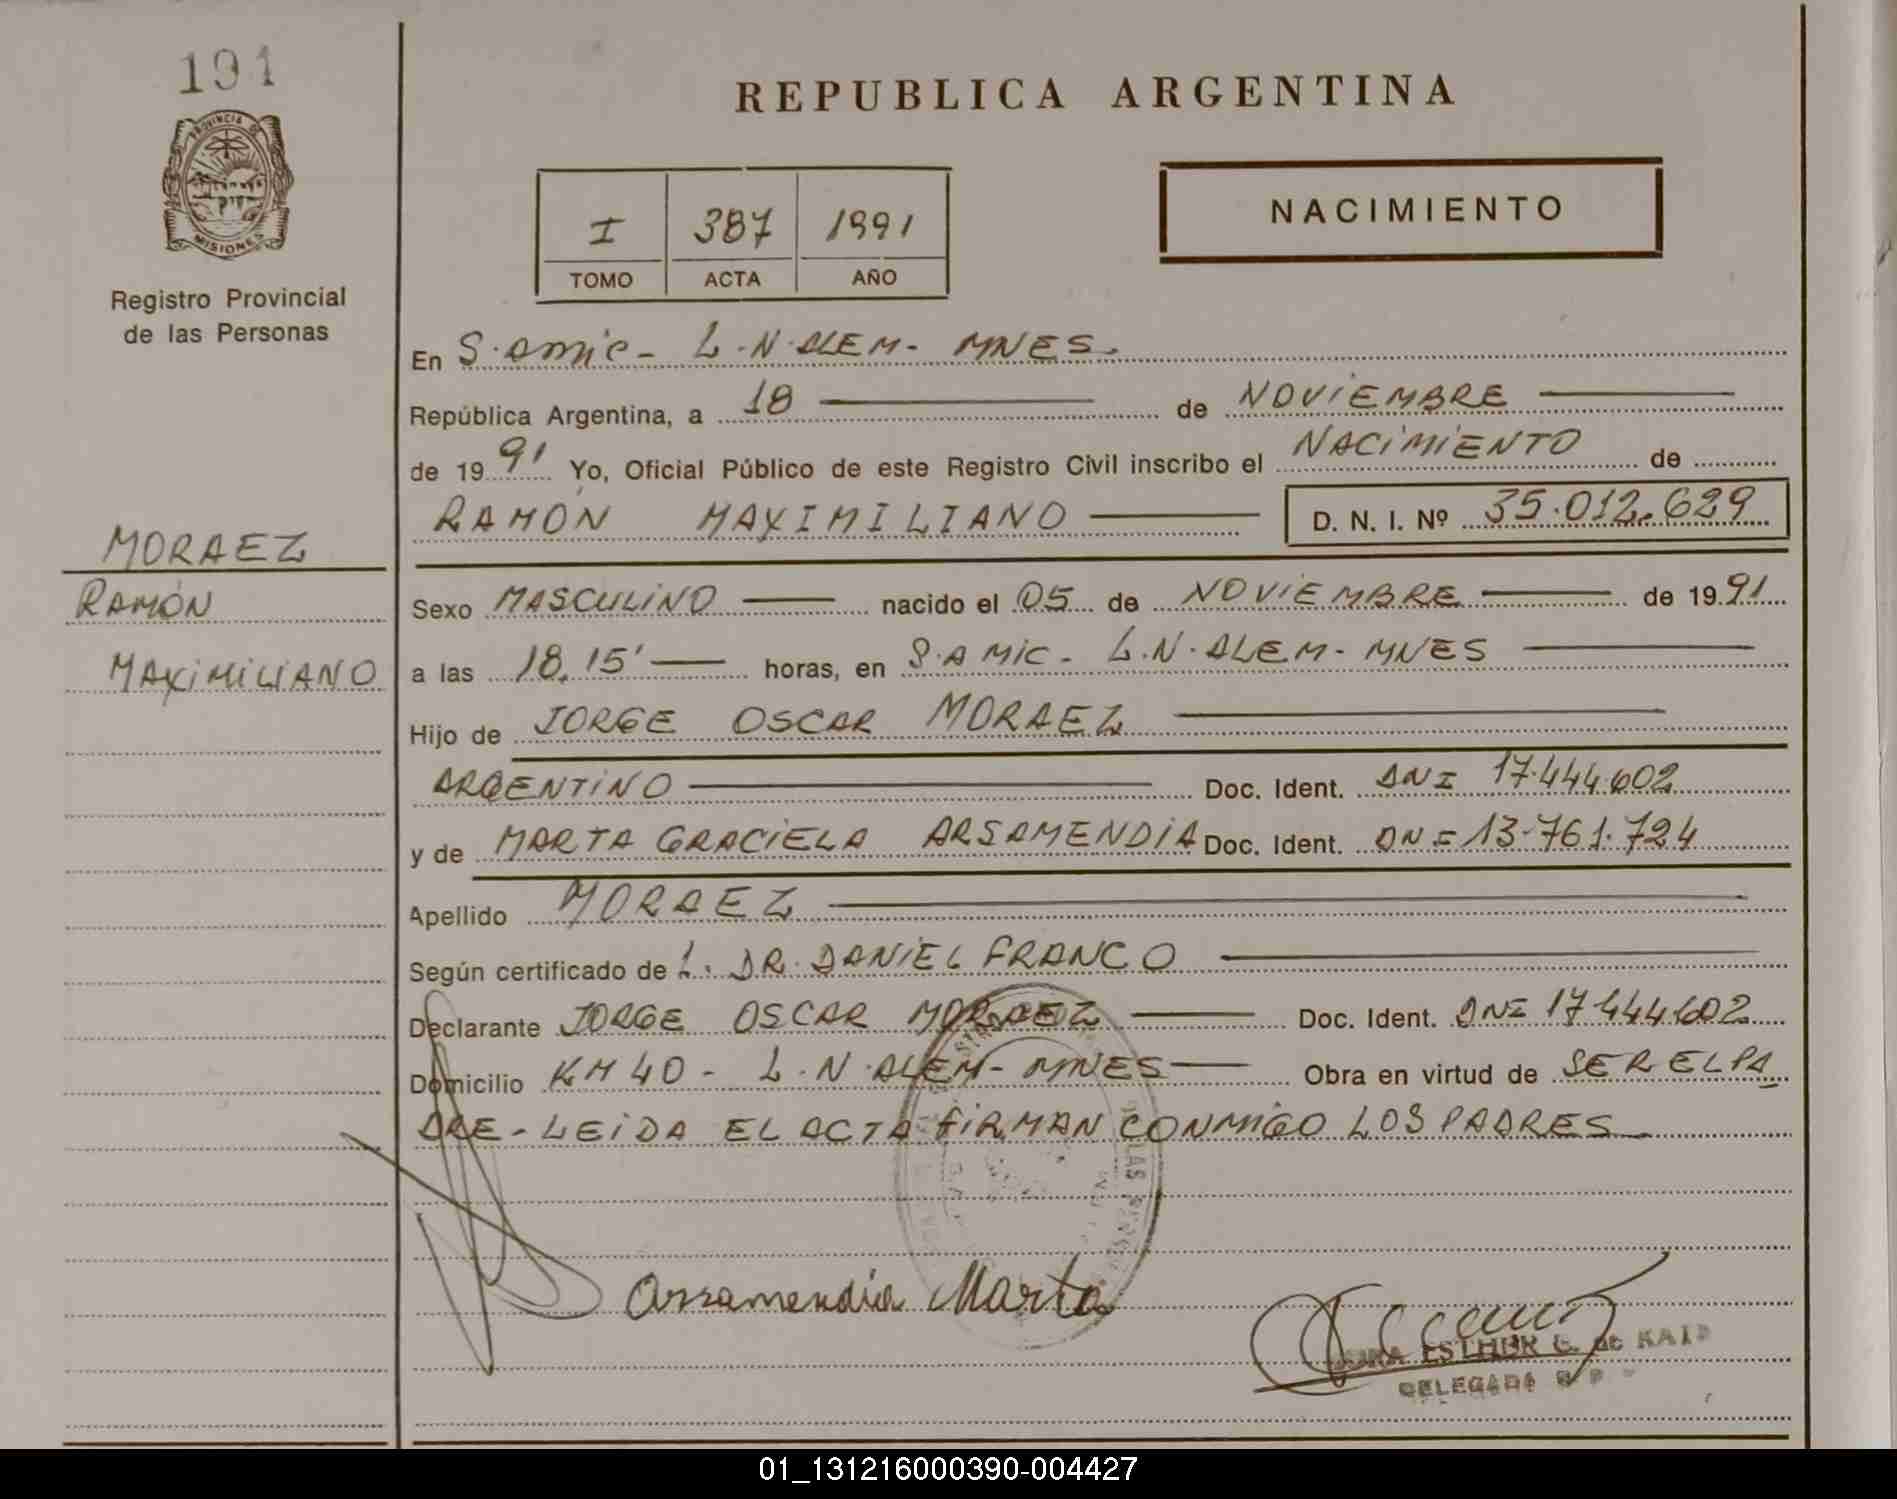 191
PROVINCIA DE
MISIONES
Registro Provincial
de las Personas
MORAEZ
RAMÓN
MAXIMILIANO
REPUBLICA ARGENTINA
I 387 1991
TOMO ACTA AÑO
NACIMIENTO
En S. AMIC - L.N. ALEM - MNES.
República Argentina, a 18 de NOVIEMBRE
de 1991 Yo, Oficial Público de este Registro Civil inscribo el NACIMIENTO de
RAMÓN MAXIMILIANO D. N. I. Nº 35.012.629
Sexo MASCULINO nacido el 05 de NOVIEMBRE de 1991
a las 18,15' horas, en S. AMIC - L.N. ALEM - MNES
Hijo de JORGE OSCAR MORAEZ
ARGENTINO Doc. Ident. DNI 17.444.602
y de MARTA GRACIELA ARSAMENDIA Doc. Ident. DNI 13.761.724
Apellido MORAEZ
Según certificado de L. DR. DANIEL FRANCO
Declarante JORGE OSCAR MORAEZ Doc. Ident. DNI 17.444.602
Domicilio KM 40 - L.N. ALEM - MNES Obra en virtud de SER EL PA
DRE - LEIDA EL ACTA FIRMAN CONMIGO LOS PADRES
Arsamendia Marta
ESTHER C. de
DELEGADA
01_131216000390-004427